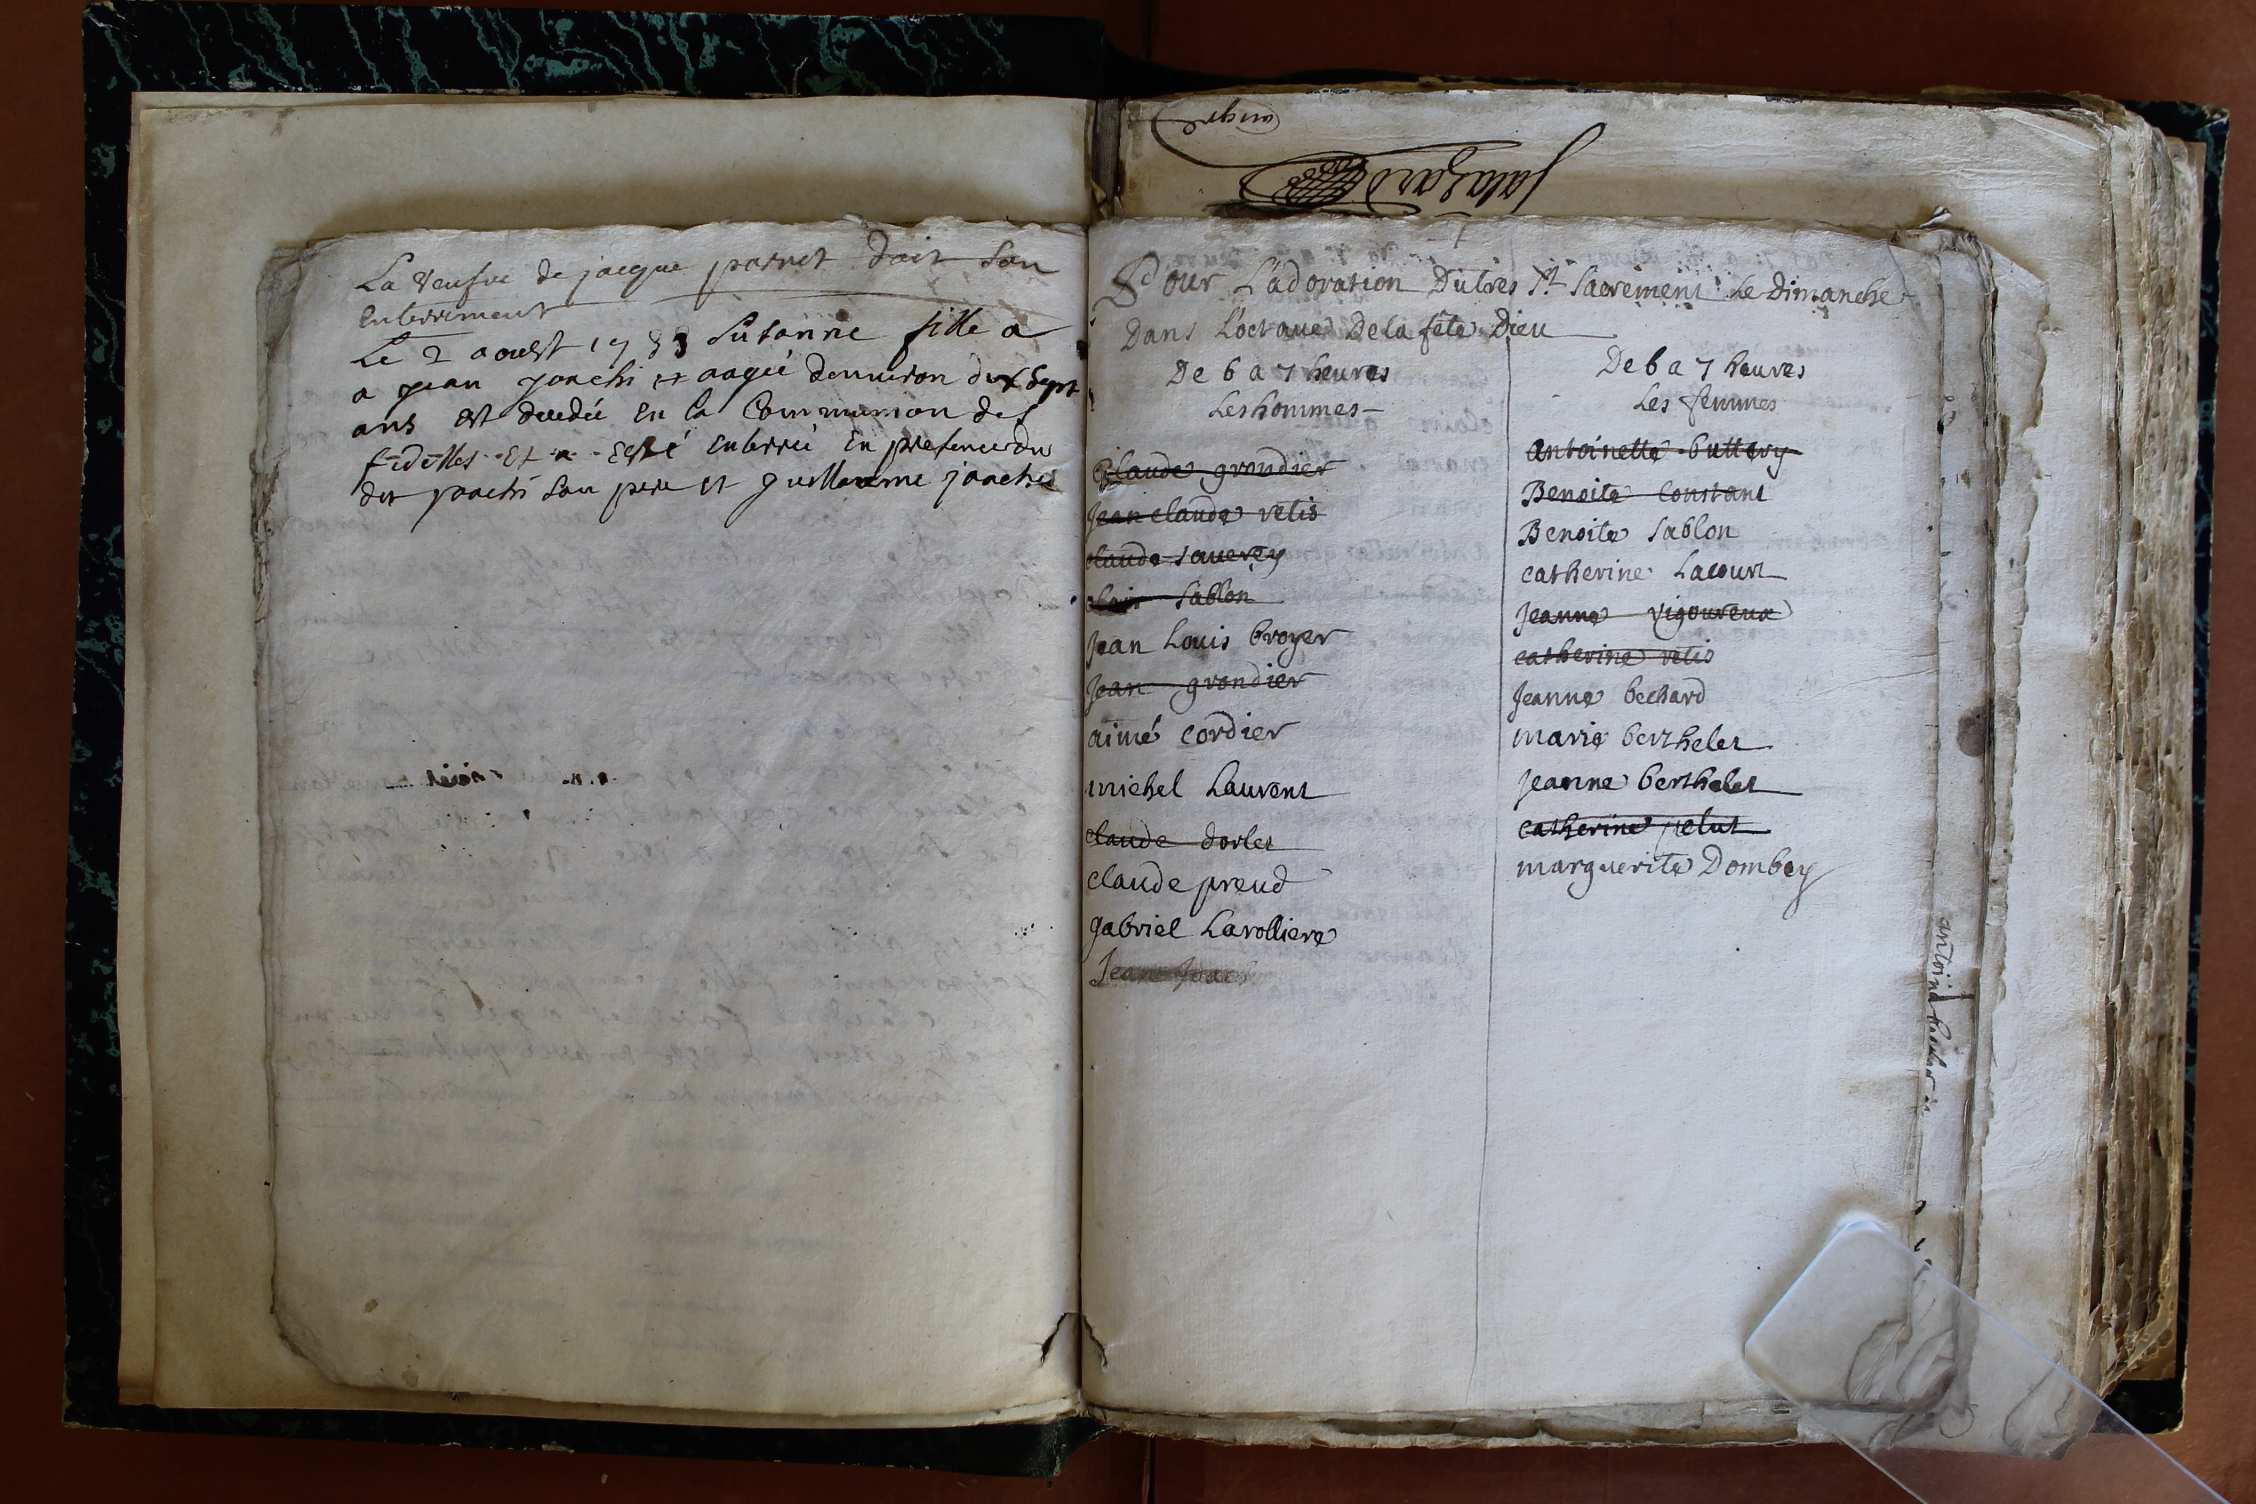 La veufve de jacque parret doit son
enterrement
Le 2 aoust 17 Susanne fille a
a jean janchi et aagée denviron dix sept
ans est decedée en la Communion des
fidelles Et a esté enterrée en presence du
dit janchi son pere et guillaume janchi
Pour L'adoration Du tres St Sacrement Le Dimanche
Dans L'octave De la fête Dieu
De 6 a 7 heures
Les hommes
claude grondier
jean claude velis
claude savery
clair sablon
jean Louis broyer
jean grondier
aimé cordier
michel Laurent
claude dorlet
claude preud
gabriel Larolliere
Jean
De 6 a 7 heures
Les femmes
antoinette buttery
Benoite Constant
Benoite sablon
catherine Lacourt
jeanne vigoureux
catherine velis
jeanne bechard
marie berthelet
jeanne berthelet
catherine pelut
marguerite Dombey
antoine